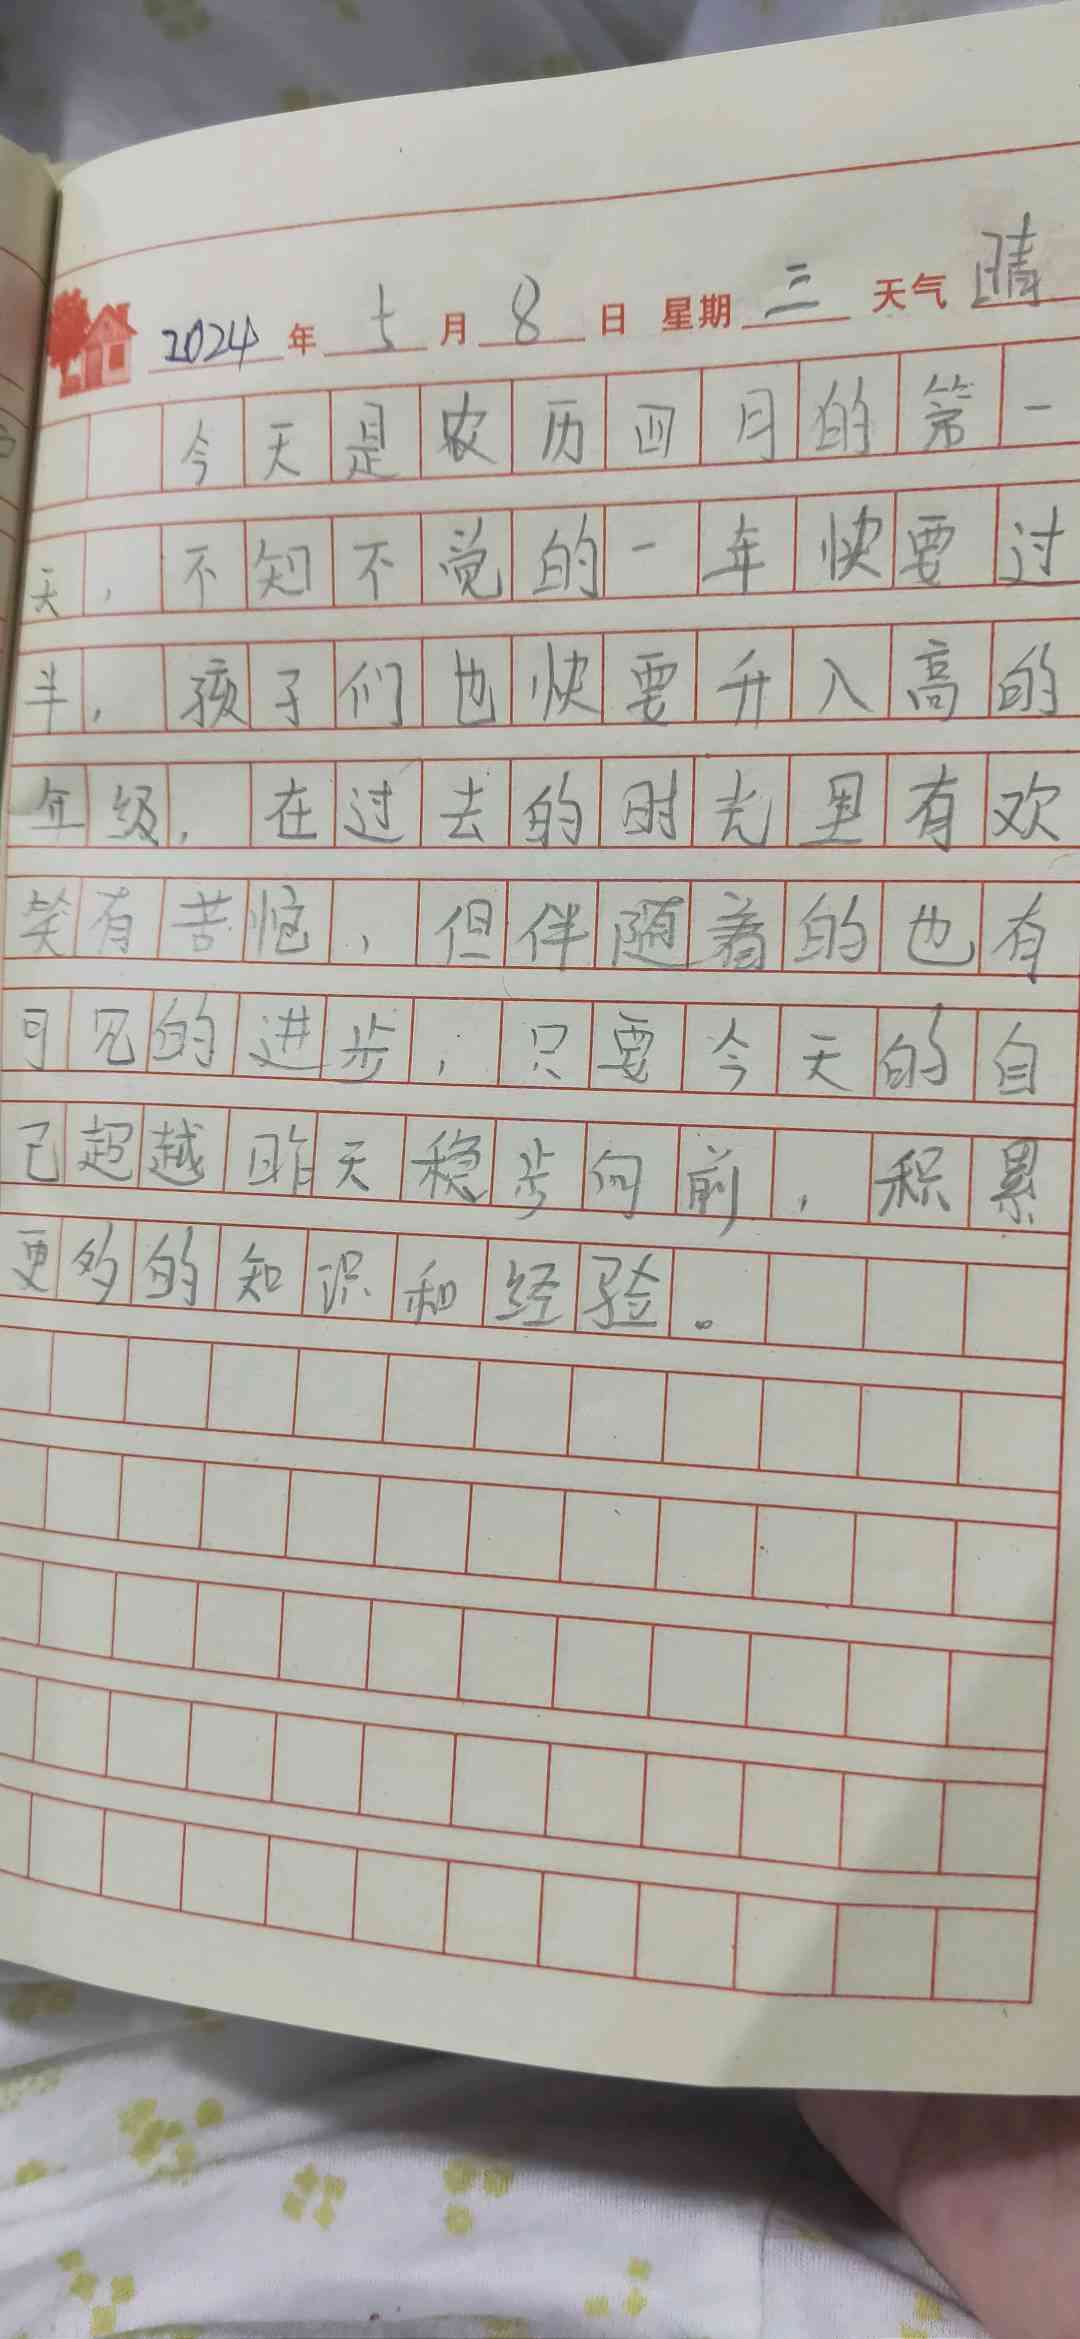 2024年 5月 8日 星期三 天气晴
今天是农历四月的第一
天，不知不觉的一年快要过
半，孩子们也快要升入高的
年级，在过去的时光里有欢
笑有苦恼，但伴随着的也有
可见的进步，只要今天的自
己超越昨天稳步向前，积累
更多的知识和经验。